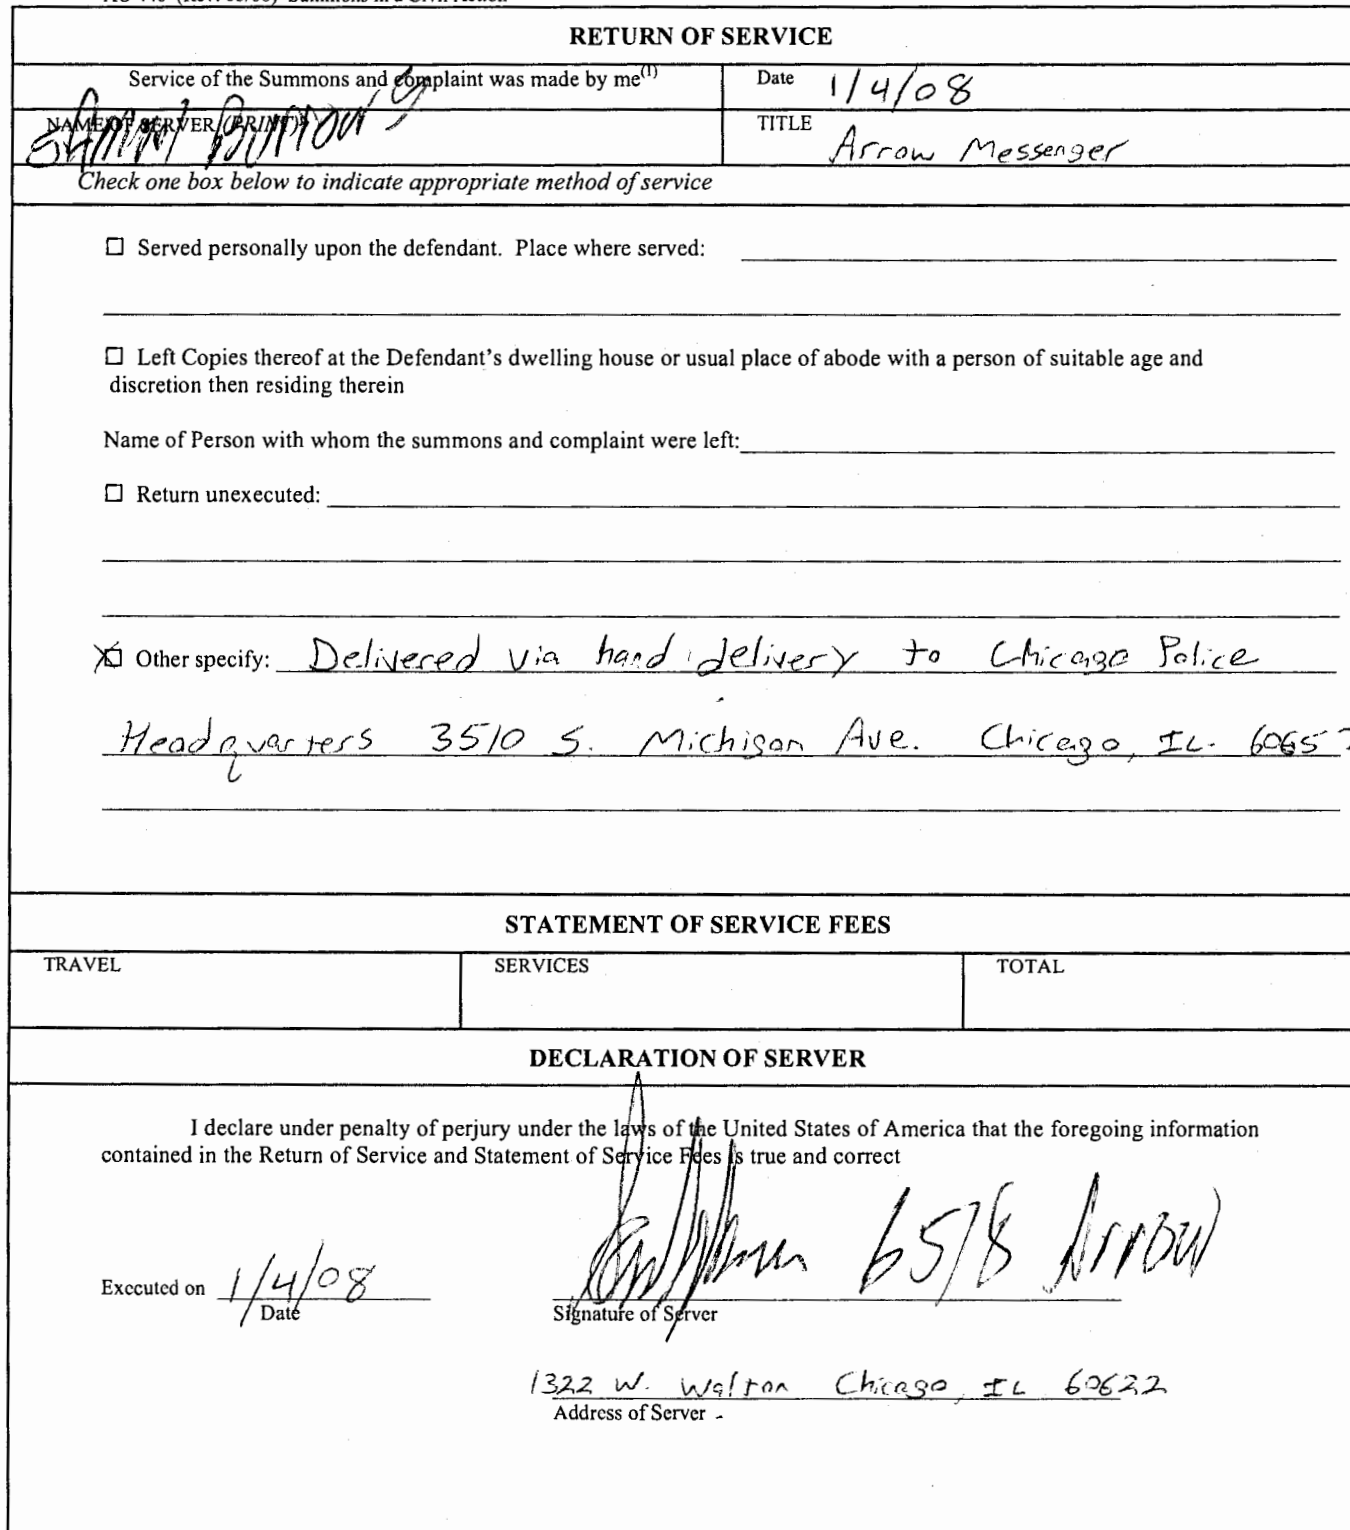 RETURN OF SERVICE
Service of the Summons and complaint was made by me(1)
Date 1/4/08
NAME OF SERVER (PRINT)
TITLE Arrow Messenger
Check one box below to indicate appropriate method of service
☐ Served personally upon the defendant. Place where served:
☐ Left Copies thereof at the Defendant's dwelling house or usual place of abode with a person of suitable age and
discretion then residing therein
Name of Person with whom the summons and complaint were left:
☐ Return unexecuted:
☒ Other specify: Delivered via hand delivery to Chicago Police
Headquarters 3510 S. Michigan Ave. Chicago, IL. 60657
STATEMENT OF SERVICE FEES
TRAVEL SERVICES TOTAL
DECLARATION OF SERVER
I declare under penalty of perjury under the laws of the United States of America that the foregoing information
contained in the Return of Service and Statement of Service Fees is true and correct
6518 Arrow
Executed on 1/4/08
Date Signature of Server
1322 W. Walton Chicago, IL 60622
Address of Server